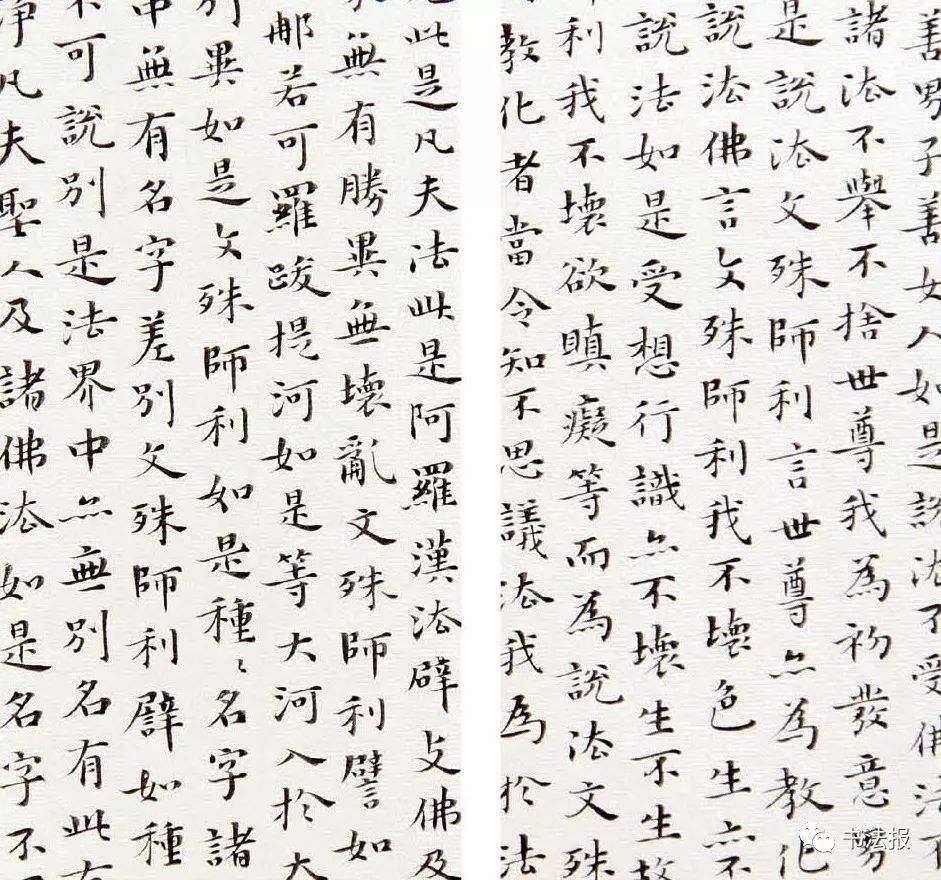 善男子善女人如是說法不受佛法不
諸法不舉不捨世尊我為初發意
是說法文殊師利言世尊亦為教化
說法佛言文殊師利我不壞色生亦不
說法如是受想行識亦不壞生不生故
利我不壞欲瞋癡等而為說法文殊
教化者當令知不思議法我為於法
此是凡夫法此是阿羅漢法辟支佛及
無有勝異無壞亂文殊師利譬如
郍若可羅跋提河如是等大河入於大
別異如是文殊師利如是種〻名字諸
中無有名字差別文殊師利譬如種
不可說別是法界中亦無別名有此
淨凡夫聖人及諸佛法如是名字不
书法报